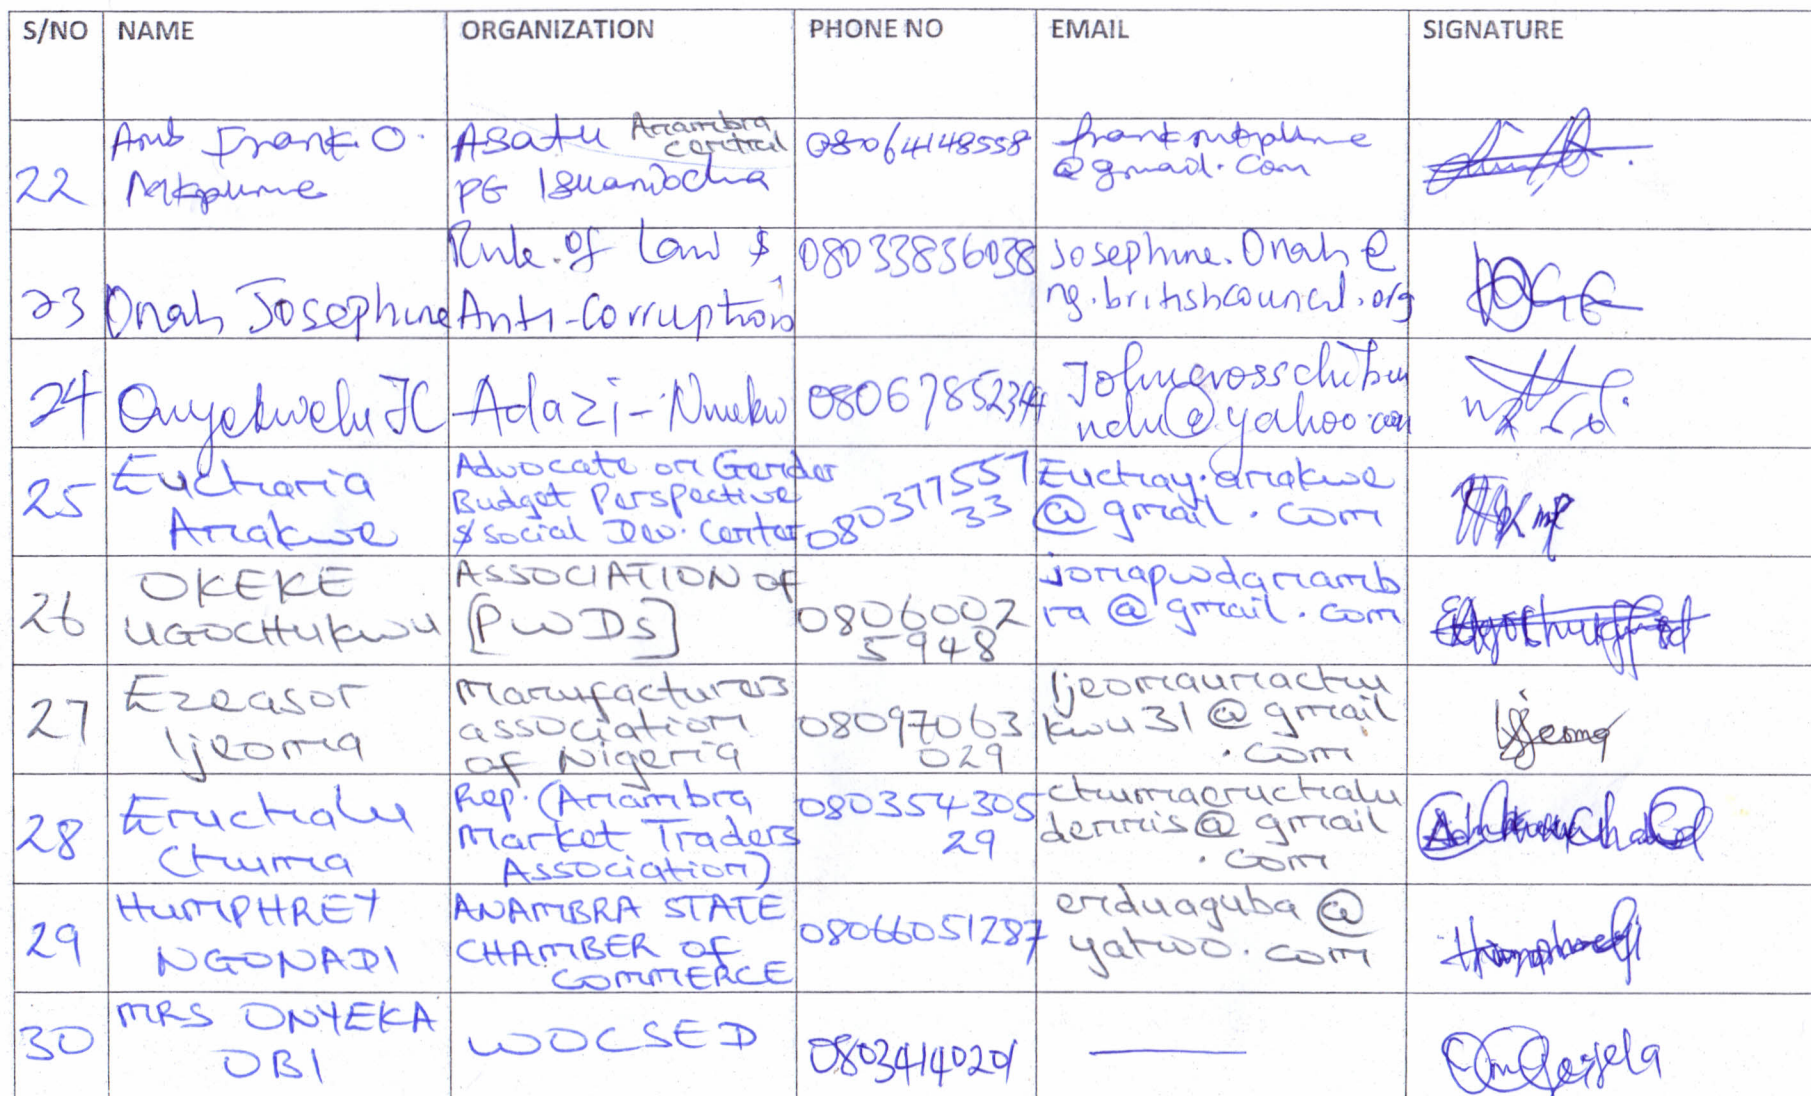 S/NO NAME ORGANIZATION PHONE NO EMAIL SIGNATURE
22 Amb Frank O. Nkpume
Asatu Anambra central
PG Isuaniocha
08064148558
franknkpume
@gmail.com
23 Onah Josephine
Rule of Law &
Anti-Corruption
08033836038
Josephine.Onah@
ng.britishcouncil.org
24 Onyekwelu JC
Adazi-Nnukwu
Johncrosschibu
ndu@yahoo.com
25 Eucharia
Anakwe
Advocate on Gender
Budget Perspective
& Social Dev. Center
080377557
33
Euchay.anakwe
@gmail.com
26 OKEKE
UGOCHUKWU
ASSOCIATION of
[PWDs]
0806002
5948
jonapwdanamb
ra@gmail.com
27 Ezeasor
Ijeoma
Manufacturers
association
of Nigeria
08097063
029
Ijeomaumachu
kwu31@gmail
.com
Ijeoma
28 Enuchalu
Chuma
Rep. (Anambra
Market Traders
Association)
080354305
29
chumaenuchalu
dennis@gmail
.com
29 HUMPHREY
NGONADI
ANAMBRA STATE
CHAMBER of
COMMERCE
08066051287
enduaguba@
yahoo.com
30 MRS ONYEKA
OBI
WOCSED
08034140201